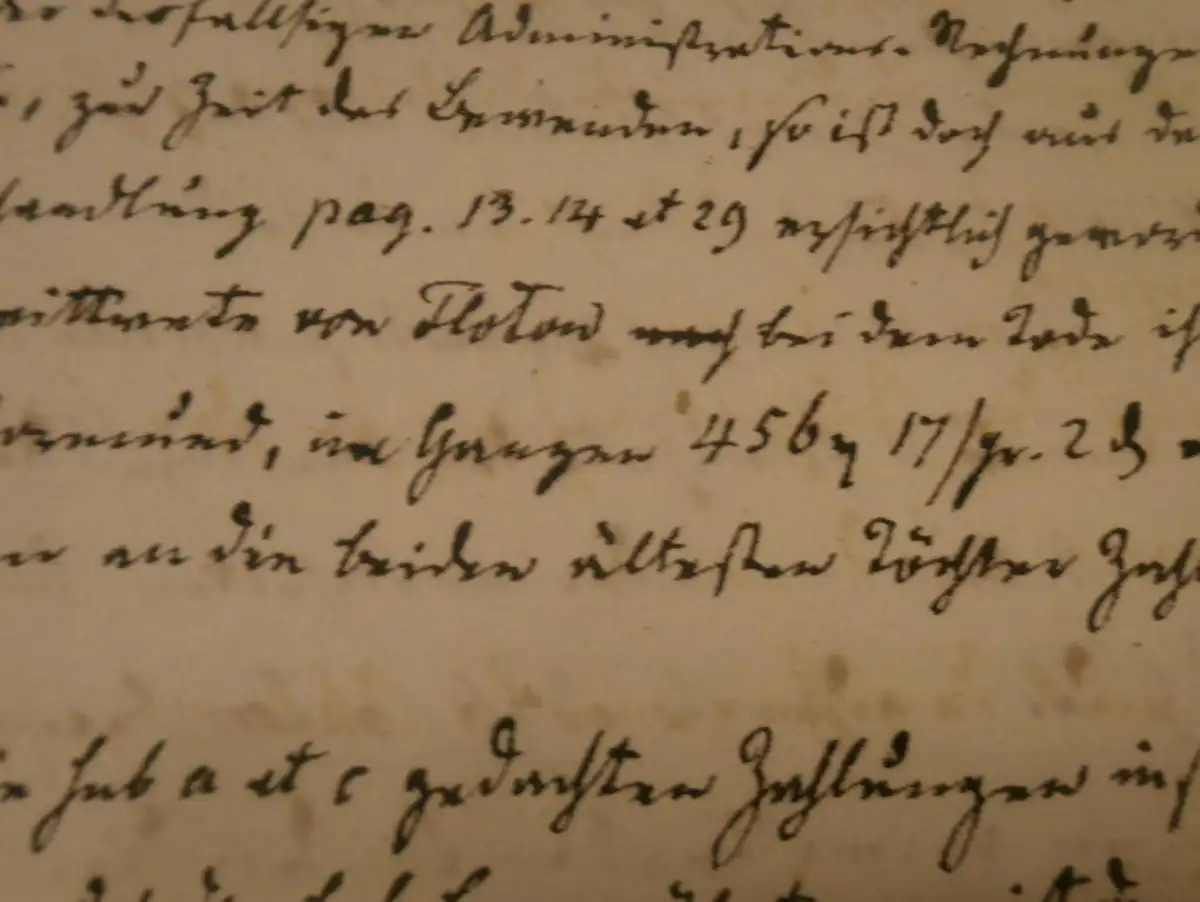 der desfallsigen Administrations-Rechnunge
, zur Zeit das Bewenden, so ist doch aus de
handlung pag. 13. 14 et 29 ersichtlich gewor
wittwete von Flotow bei dem Tode ih
Vormund, im Ganzen 456 17 sgr. 2 d
an die beiden ältesten Töchter Zahl
sub a et c gedachten Zahlungen ins